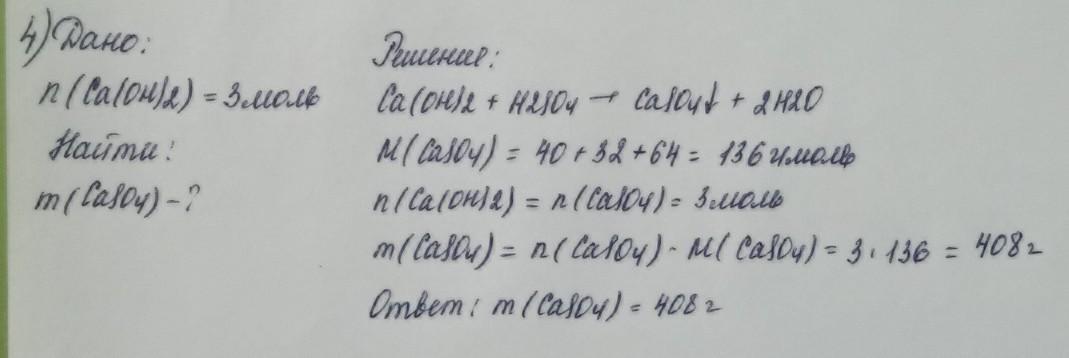 4) Дано:
n(Ca(OH)2) = 3 моль
Найти:
m(CaSO4) - ?
Решение:
Ca(OH)2 + H2SO4 → CaSO4↓ + 2H2O
M(CaSO4) = 40 + 32 + 64 = 136 г/моль
n(Ca(OH)2) = n(CaSO4) = 3 моль
m(CaSO4) = n(CaSO4) · M(CaSO4) = 3 · 136 = 408 г
Ответ: m(CaSO4) = 408 г